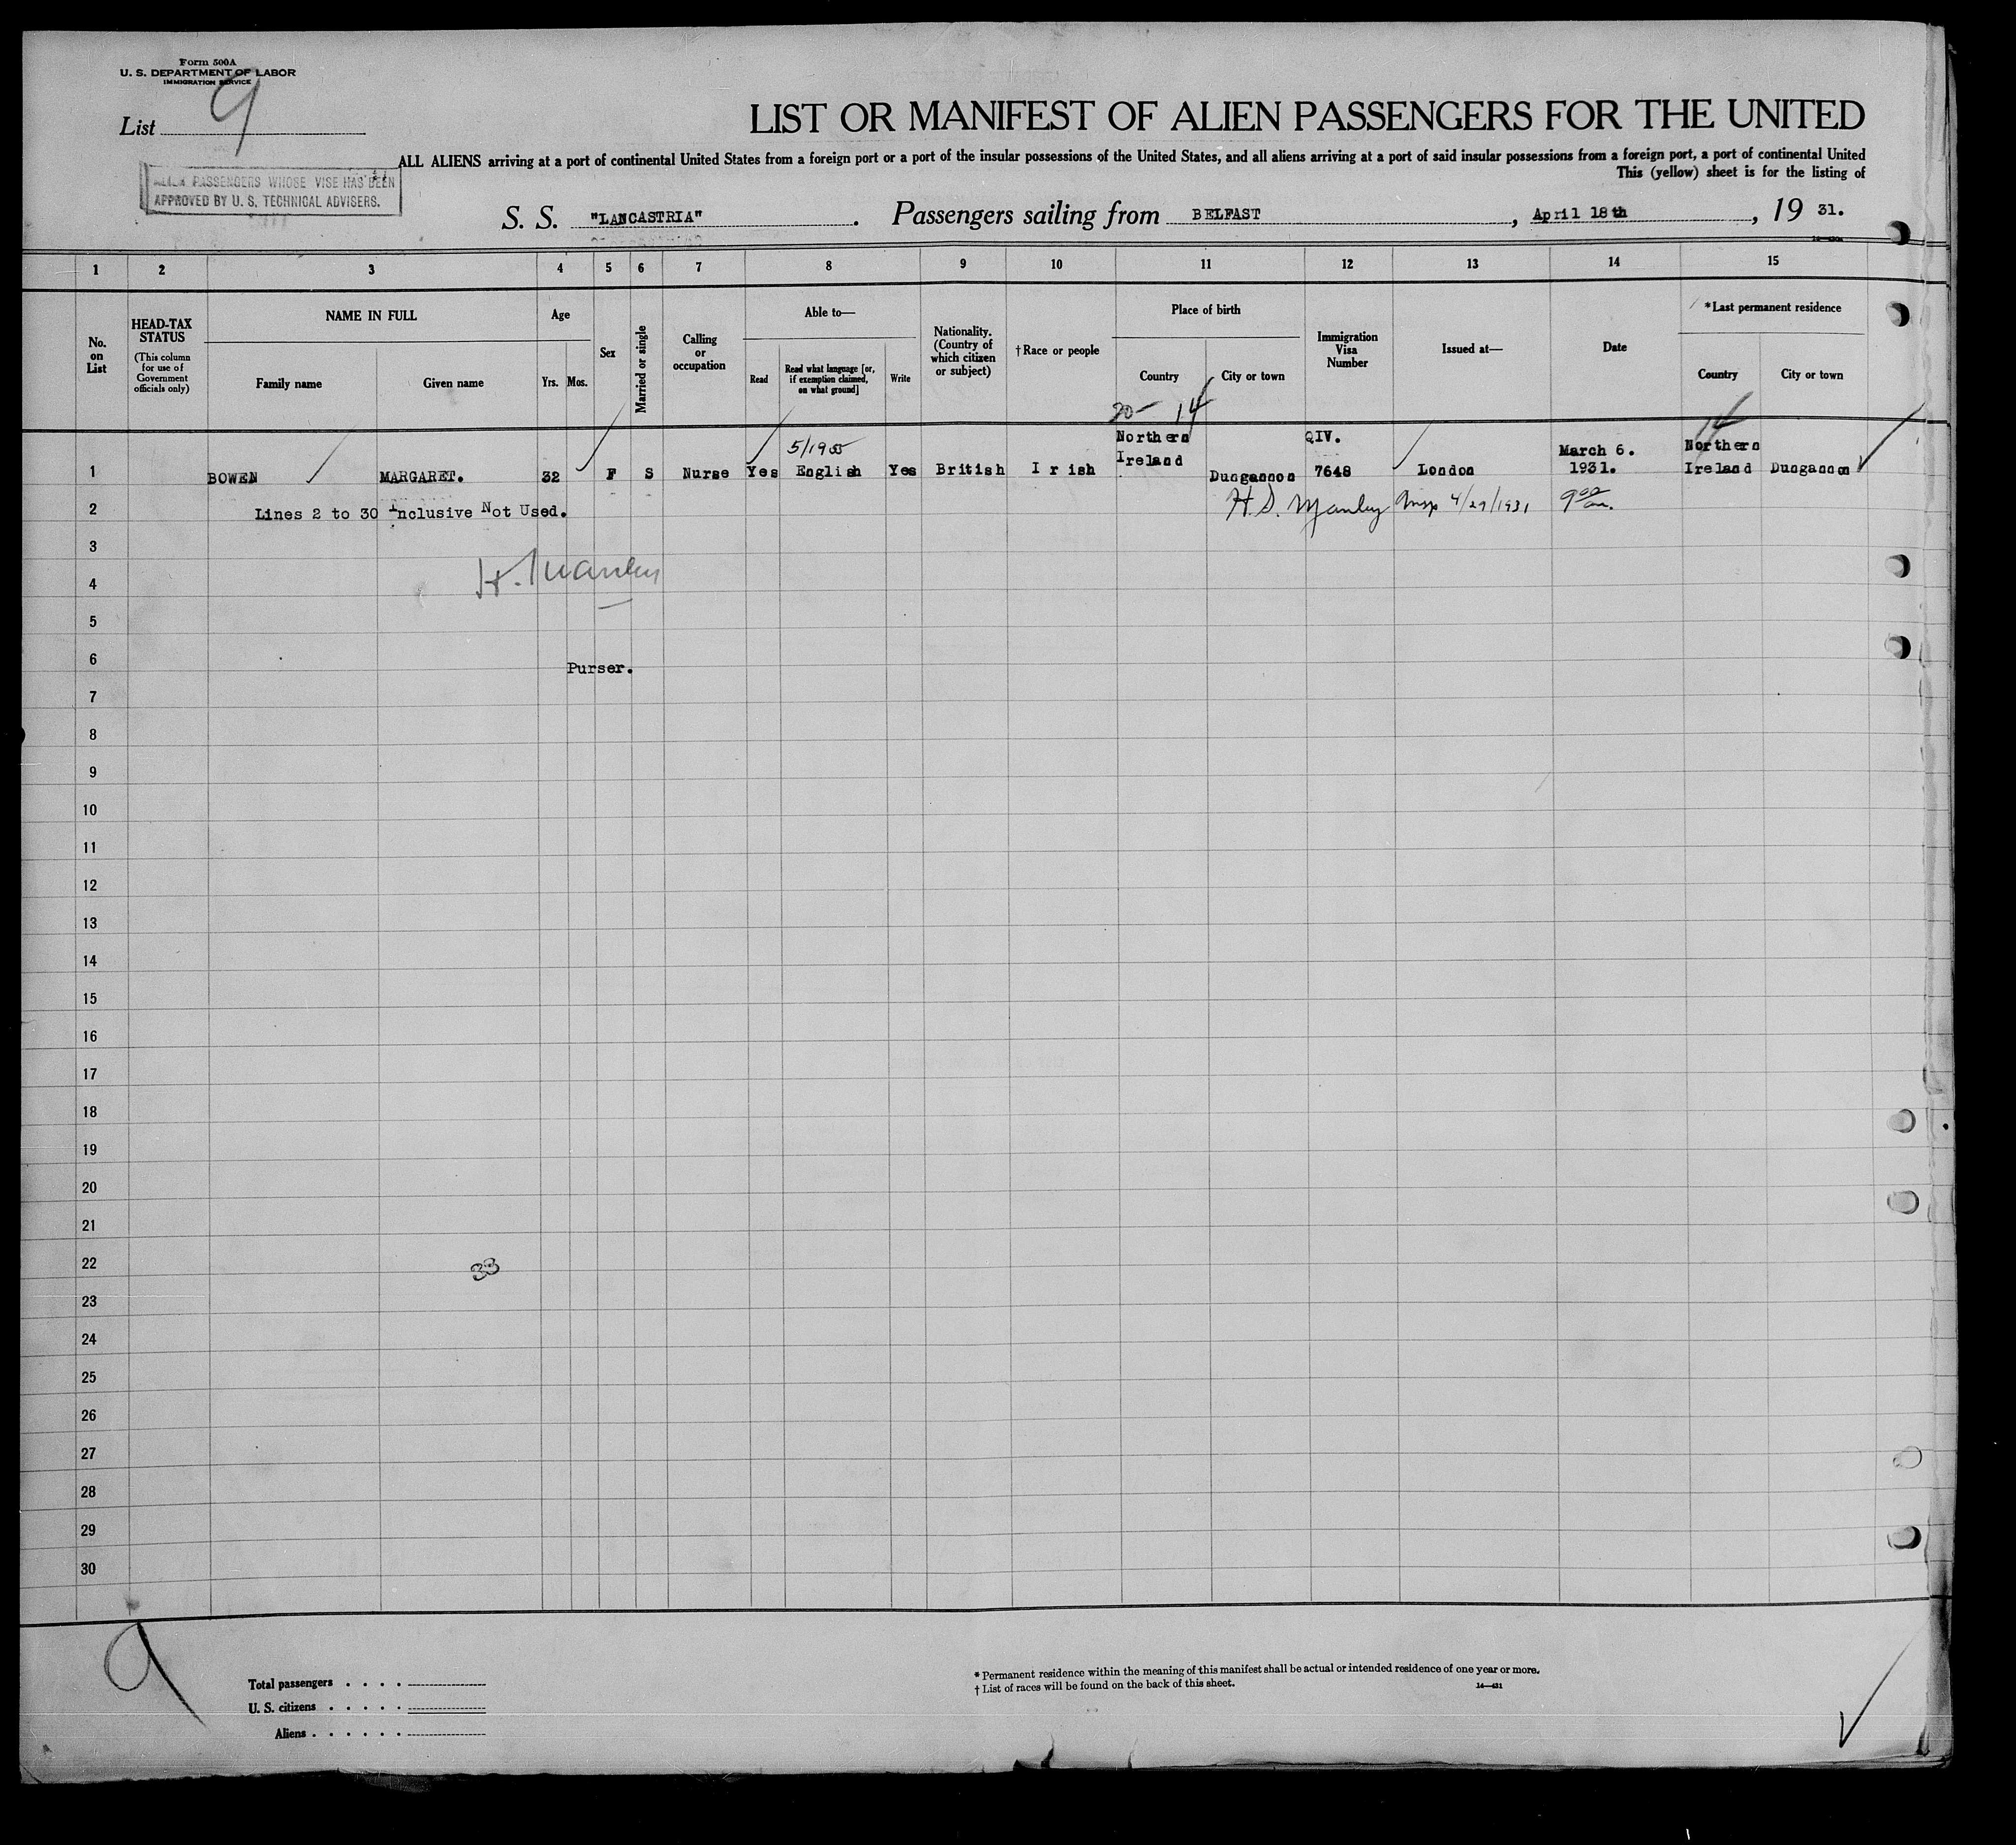 Form 500A
U. S. DEPARTMENT OF LABOR
IMMIGRATION SERVICE
List 9
LIST OR MANIFEST OF ALIEN PASSENGERS FOR THE UNITED
ALL ALIENS arriving at a port of continental United States from a foreign port or a port of the insular possessions of the United States, and all aliens arriving at a port of said insular possessions from a foreign port, a port of continental United
This (yellow) sheet is for the listing of
ALIEN PASSENGERS WHOSE VISE HAS BEEN
APPROVED BY U. S. TECHNICAL ADVISERS.
S. S. "LANCASTRIA". Passengers sailing from BELFAST, April 18th, 19 31.
1 2 3 4 5 6 7 8 9 10 11 12 13 14 15
No. on List
HEAD-TAX STATUS
(This column for use of Government officials only)
NAME IN FULL
Family name Given name
Age
Yrs. Mos.
Sex
Married or single
Calling or occupation
Able to—
Read
Read what language [or, if exemption claimed, on what ground]
Write
Nationality. (Country of which citizen or subject)
† Race or people
Place of birth
Country City or town
Immigration Visa Number
Issued at—
Date
*Last permanent residence
Country City or town
20— 14 14
5/1900
1 BOWEN MARGARET. 32 F S Nurse Yes English Yes British Irish Northern Ireland Dungannon QIV. 7648 London March 6. 1931. Northern Ireland Dungannon
2 Lines 2 to 30 Inclusive Not Used. H. S. Manley Insp 4/27/1931 9 00 am.
3
H. Manley
4
5
6
Purser.
7
8
9
10
11
12
13
14
15
16
17
18
19
20
21
22
33
23
24
25
26
27
28
29
30
9
Total passengers . . . .
U. S. citizens . . . . .
Aliens . . . . . .
* Permanent residence within the meaning of this manifest shall be actual or intended residence of one year or more.
† List of races will be found on the back of this sheet.
14—431